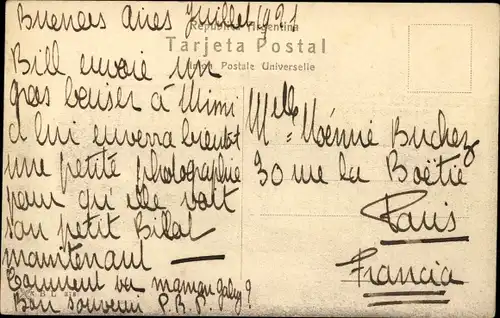 Buenos Aires Juillet 1921
Republica Argentina
Tarjeta Postal
Union Postale Universelle
Bill envoie un
gros baiser à Mimi
& lui enverra bientot
une petite photographie
pour qu'elle voit
son petit Billot
maintenant —
Comment va maman galy?
Bon souvenir P.B.P.
Melle Noémie Buchez
30 rue la Boëtie
Paris
Francia